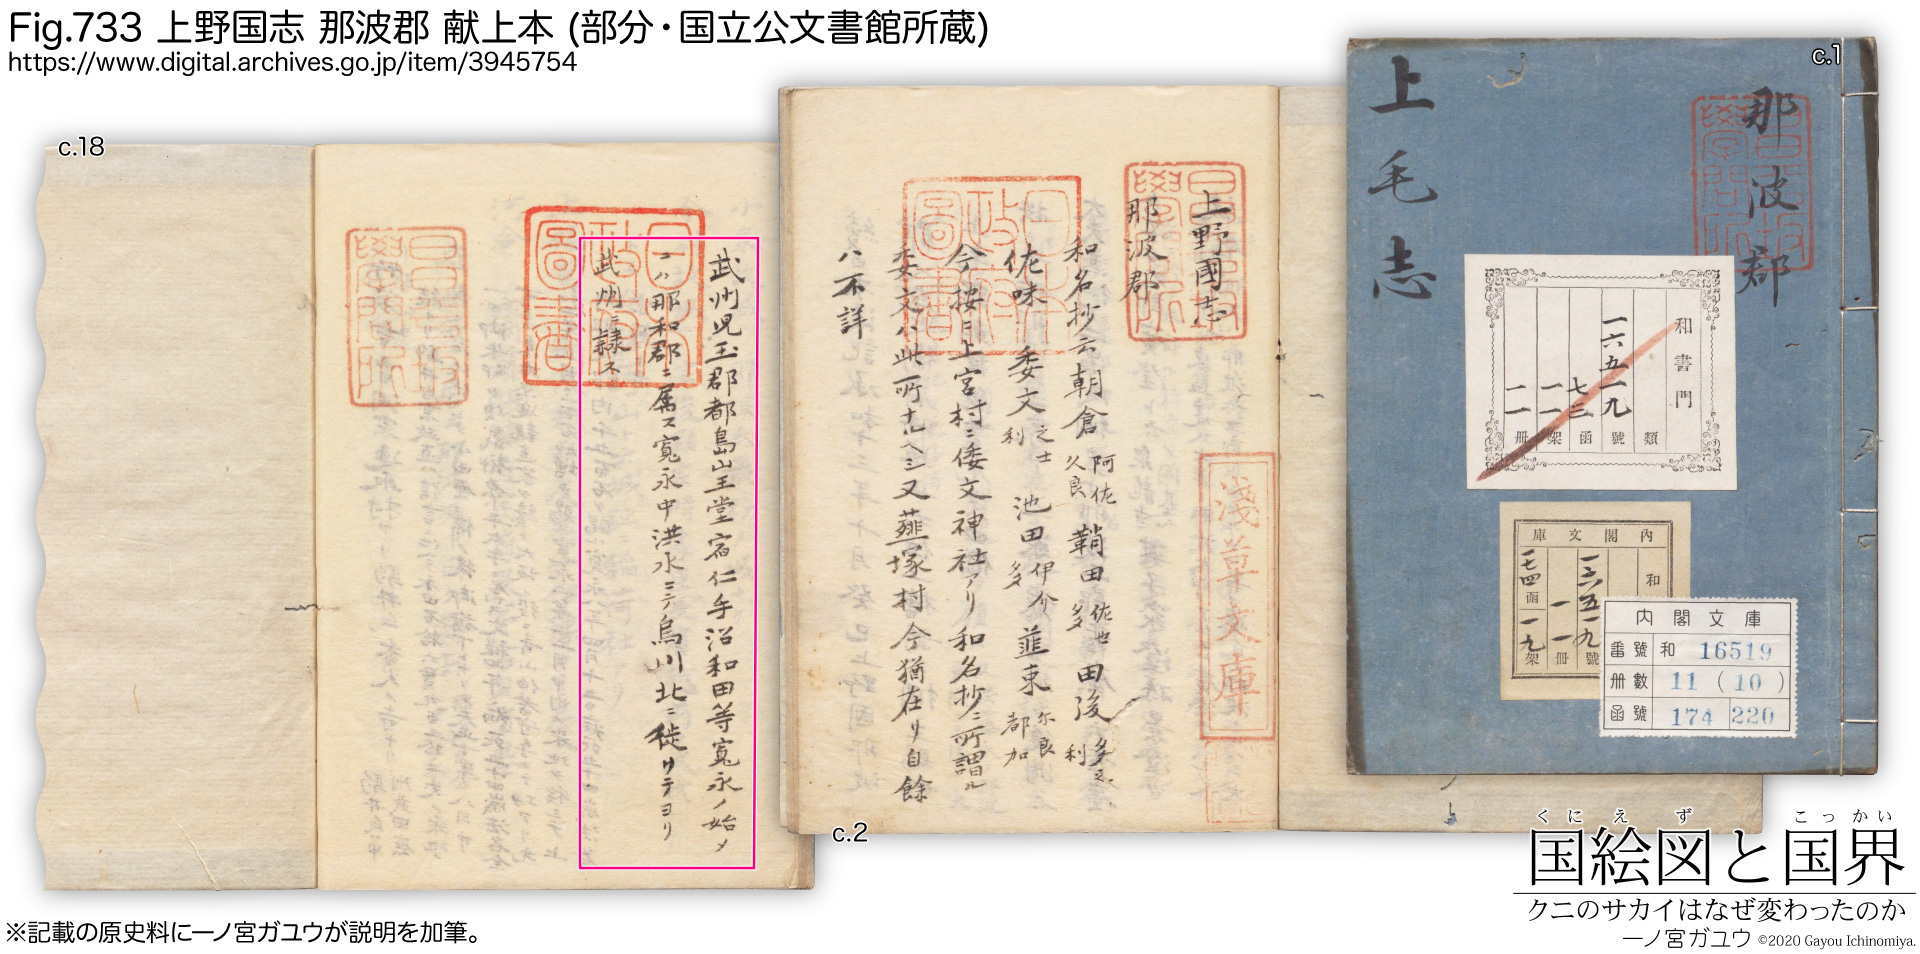 Fig.733 上野国志 那波郡 献上本 (部分・国立公文書館所蔵)
https://www.digital.archives.go.jp/item/3945754
c.1
那波郡
上毛志
和書門
類
一六五一九
號
七三
函
一一
架
一一
冊
内閣文庫
和
一六五一九
號
一一
冊
一七四
函
一九
架
内閣文庫
番號 和 16519
冊數 11 (10)
函號 174 220
c.2
上野國志
那波郡
和名抄云朝倉 阿佐久良 鞘田 佐也多 田後 多之利
佐味 委文 之士利 池田 伊介多 韮束 尓良都加
今按ニ上宮村ニ倭文神社アリ和名抄ニ所謂ル
委文ハ此所ナルヘシ又韮塚村今猶在リ自餘
ハ不詳
淺草文庫
日本政府圖書
昌平坂學問所
c.18
武州児玉郡都島山王堂宿仁手沼和田等寛永ノ始メ
ハ那和郡ニ属ス寛永中洪水ニテ烏川北ニ徙リテヨリ
武州ニ隷ス
日本政府圖書
昌平坂學問所
くにえず こっかい
国絵図と国界
クニのサカイはなぜ変わったのか
一ノ宮ガユウ ©2020 Gayou Ichinomiya.
※記載の原史料に一ノ宮ガユウが説明を加筆。